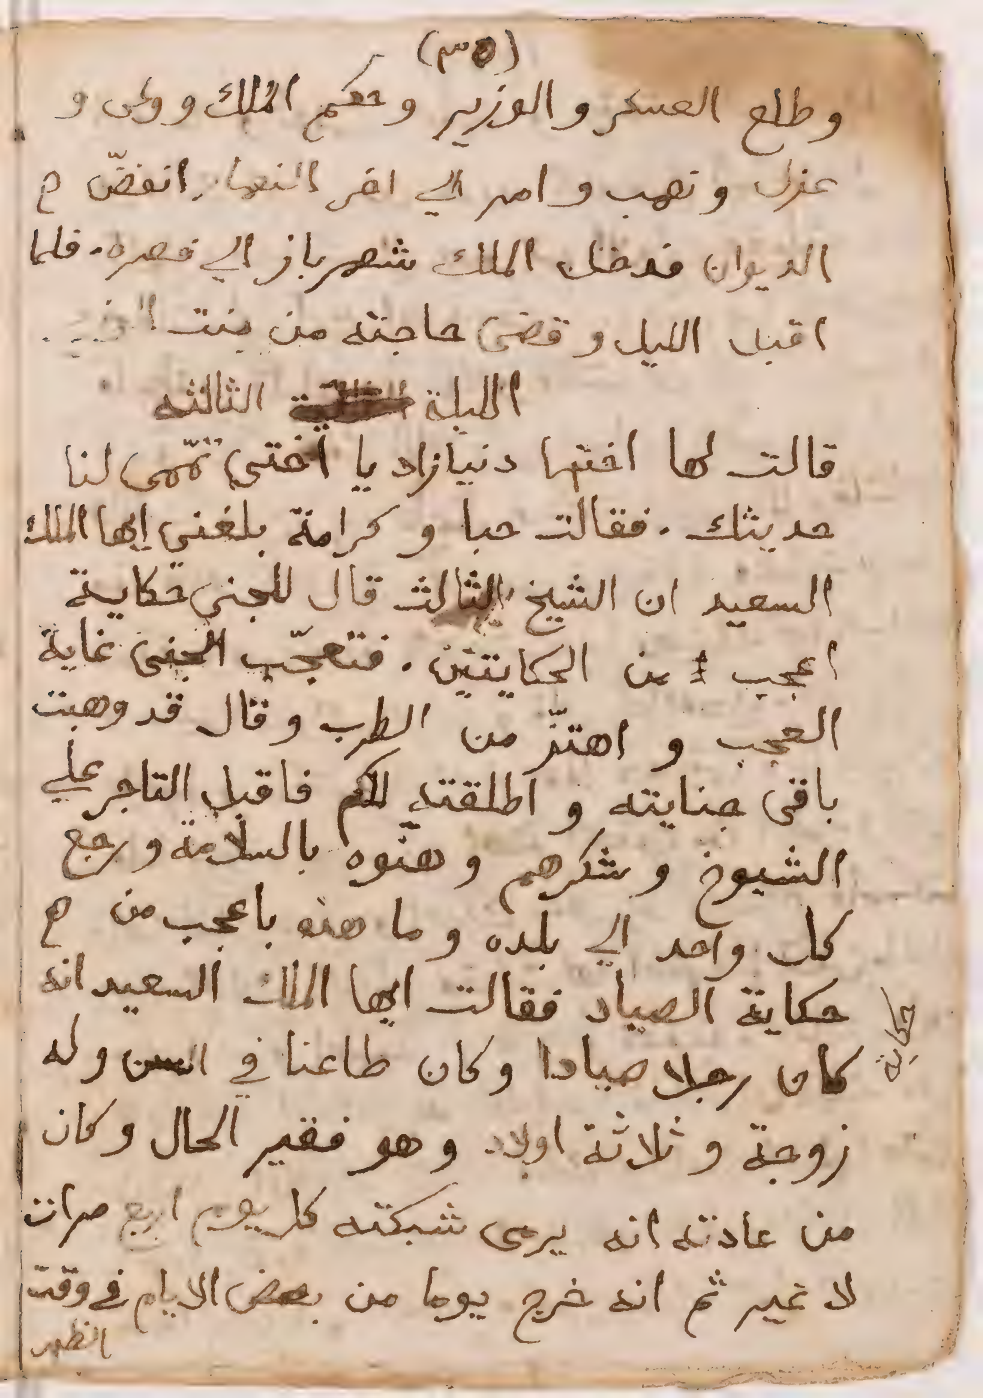 (٣٥)
و طلع العسكر و الوزير و حكم الملك و ولى و
عزل و نهب و امر الي اخر النهار. انفضّ
الديوان فدخل الملك شهرباز الي قصره. فلما
اقبل الليل و قضى حاجته من بنت الوزير.
الليلة الثالثه
قالت لها اختها دنيازاد يا اختي تمّمى لنا
حديثك. فقالت حبا و كرامة بلغني ايها الملك
السعيد ان الشيخ الثالث قال للجني حكاية
اعجب من الحكايتين. فتعجّب الجنى غاية
العجب و اهتزّ من الطرب و قال قد وهبت
باقى جنايته و اطلقته لكم فاقبل التاجر علي
الشيوخ و شكرهم و هنّوه بالسلامة و رجع
كل واحد الي بلده و ما هذه باعجب من
حكاية الصياد فقالت ايها الملك السعيد انه
حكاية
كان رجلا صيادا و كان طاعنا في السن و له
زوجة و ثلاثة اولاد و هو فقير الحال و كان
من عادته انه يرمى شبكته كل يوم اربع مرات
لا غير ثم انه خرج يوما من بعض الايام في وقت
الظهر